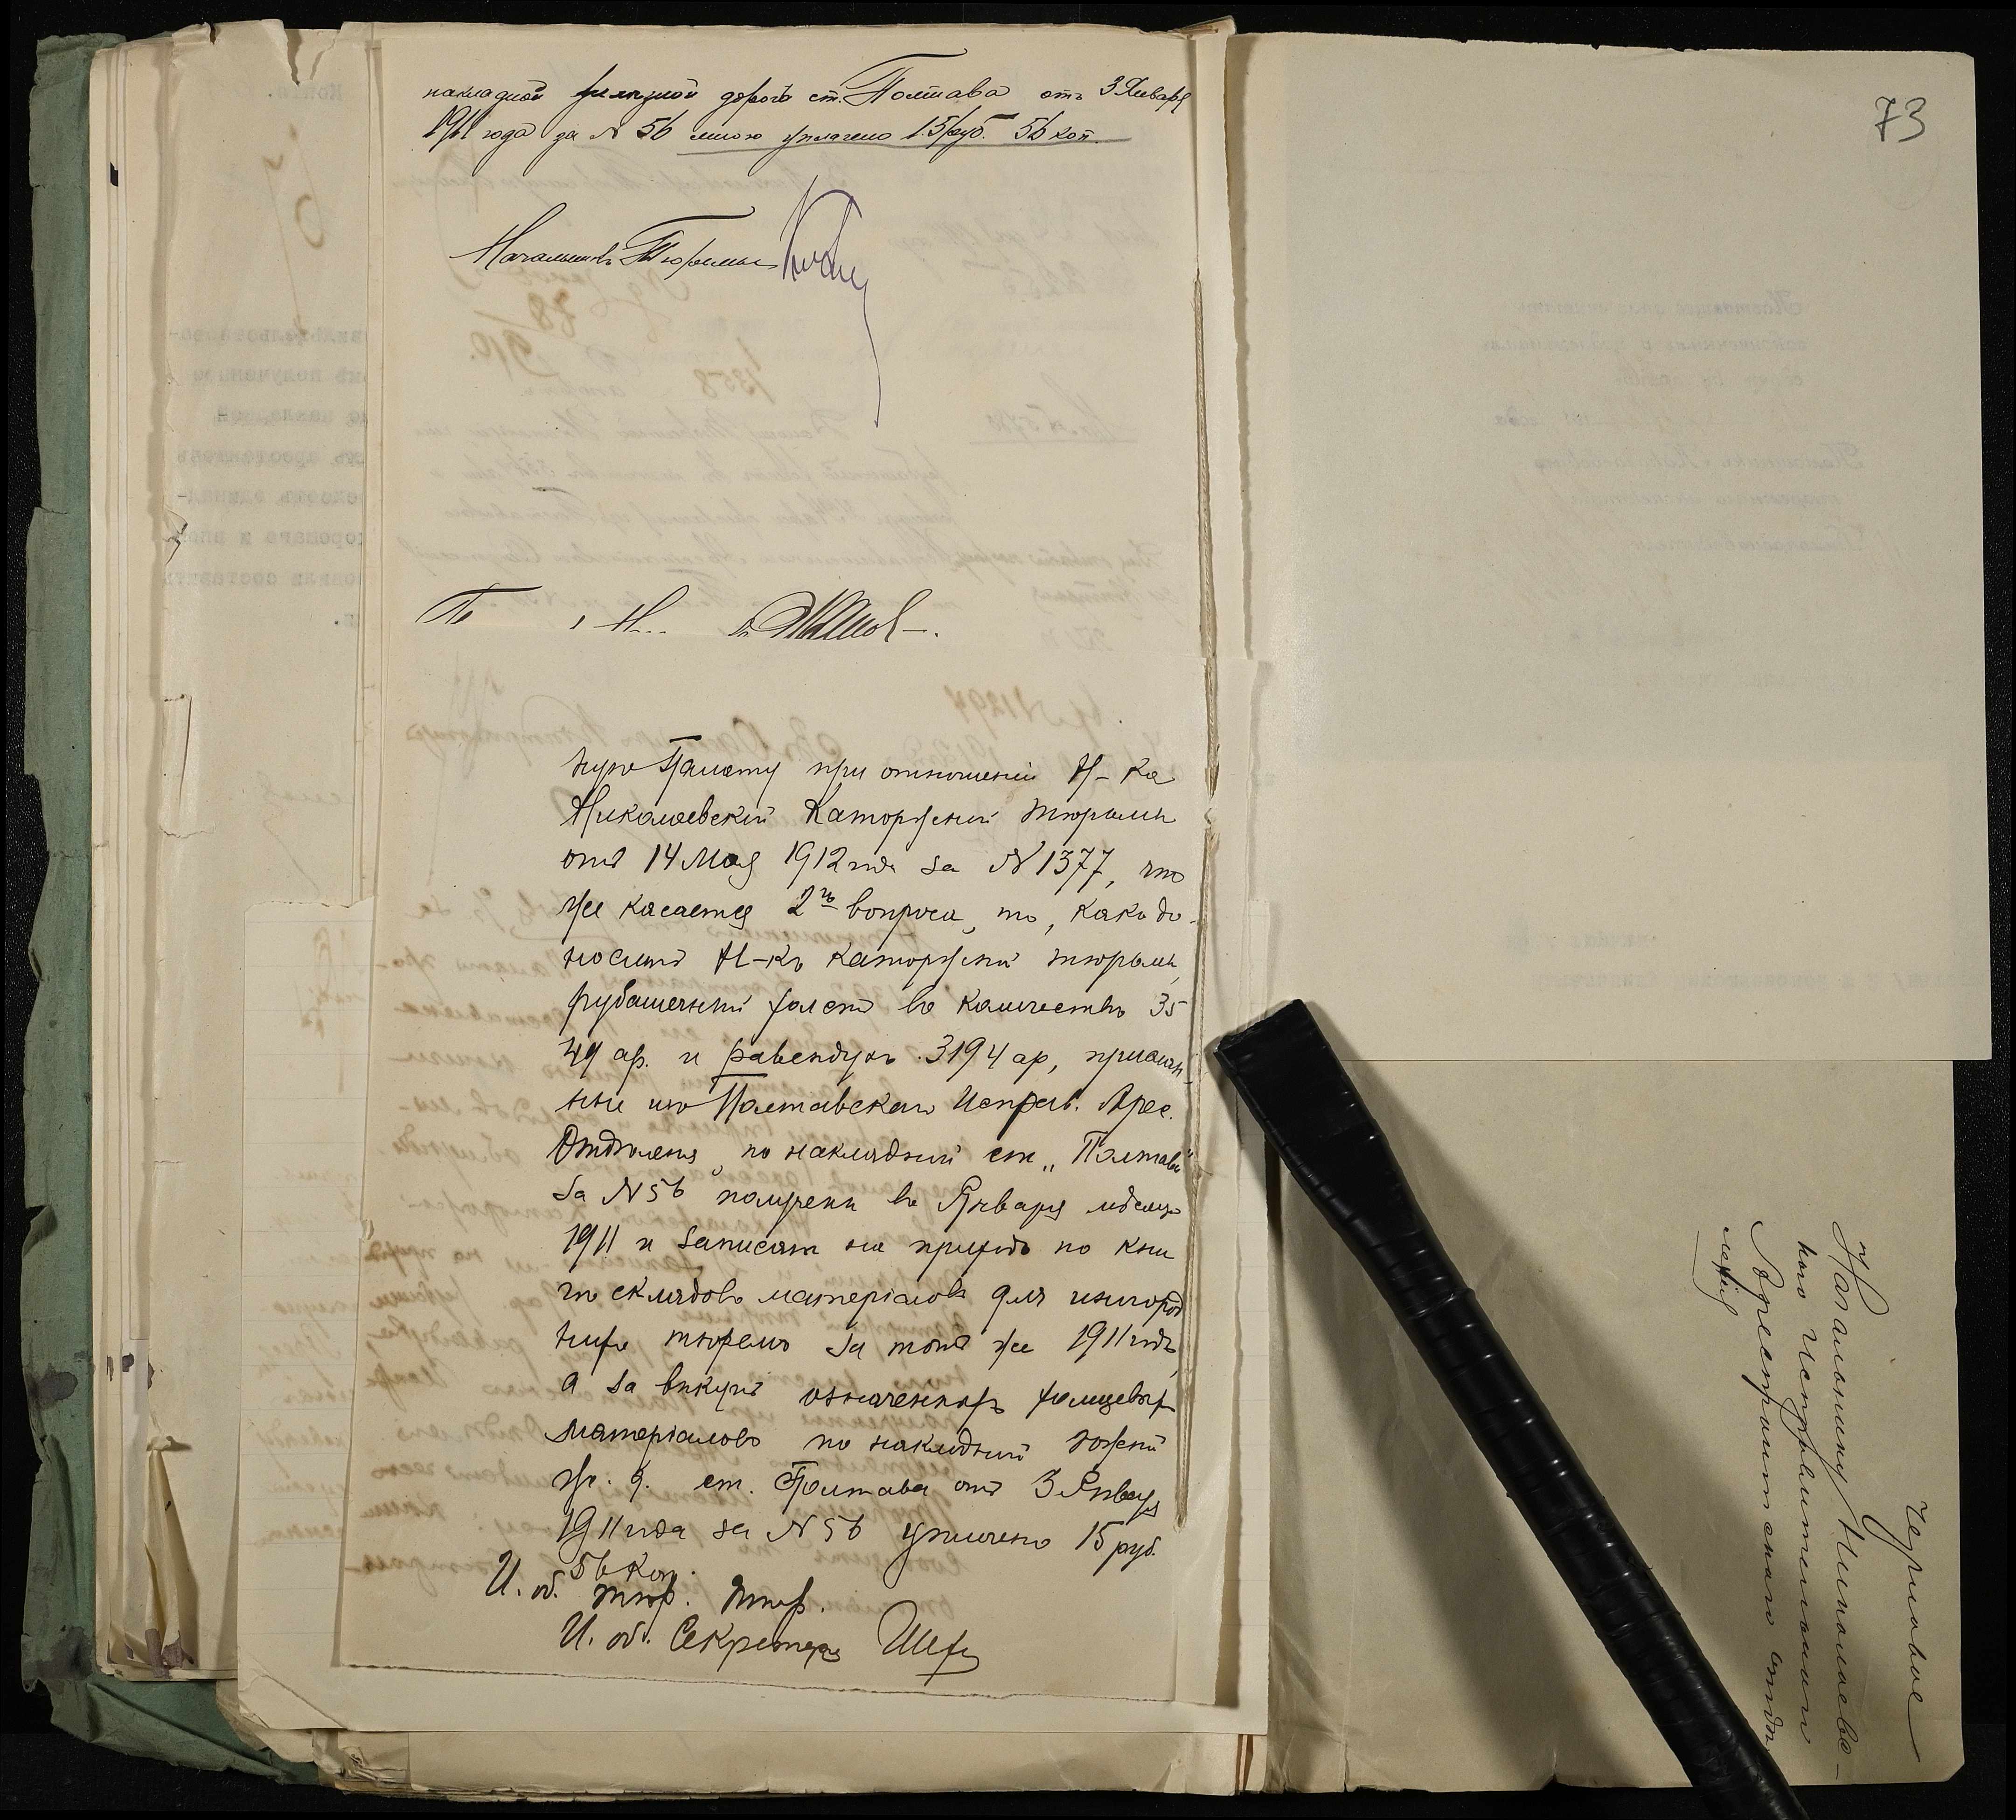 накладной желѣзной дороги ст. Полтава отъ 3 Января
1911 года за № 56 мною уплачено 15 руб. 56 коп.
Начальникъ Тюрьмы
73
ную Палату при отношеніи Н-ка
Николаевской Каторжной тюрьмы
отъ 14 Мая 1912 года за № 1377, что
же касается 2го вопроса, то, какъ до-
носитъ Н-къ Каторжной тюрьмы,
рубашечный холстъ въ количествѣ 35
49 ар. и равендукъ 3194 ар, прислан-
ные изъ Полтавскаго Исправ. Арес.
Отдѣленія, по накладной ст. „Полтава"
за № 56 получены въ Январѣ мѣсяцѣ
1911 и записаны на приходъ по кни
гѣ складовъ матеріаловъ для иногород
нихъ тюремъ за тотъ же 1911 годъ,
а за выкупъ означенныхъ холщевыхъ
матеріаловъ по накладной Южной
ж. д. ст. Полтава отъ 3 Января
1911 года за № 56 уплачено 15 руб.
56 коп.
И. об. тюр. инсп.
И. об. Секретаря
Черновое
Начальнику Николаевс-
каго Исправительнаго
Арестантскаго отдѣ
ленія